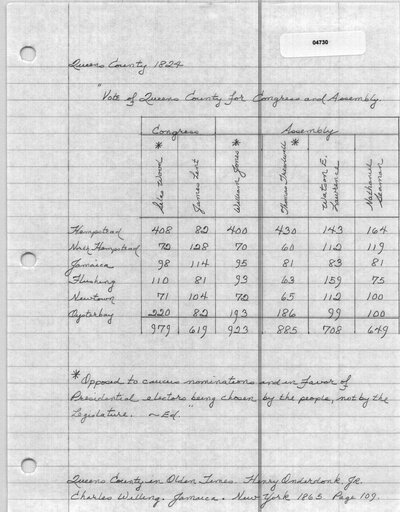 04730
Queens County 1824
"Vote of Queens County for Congress and Assembly.
Congress Assembly
* Silas Wood James Lent * William Jones * Thomas Tredwell Watson E. Lawrence Nathaniel Seaman
Hempstead 408 82 400 430 143 164
North Hempstead 72 128 70 60 112 119
Jamaica 98 114 95 81 83 81
Flushing 110 81 93 63 159 75
Newtown 71 104 72 65 112 100
Oysterbay 220 82 193 186 99 100
979 619 923 885 708 649
* Opposed to caucus nominations and in favor of
Presidential electors being chosen by the people, not by the
Legislature. ~ Ed."
Queens County in Olden Times. Henry Onderdonk, Jr.
Charles Welling. Jamaica. New York 1865. Page 109.